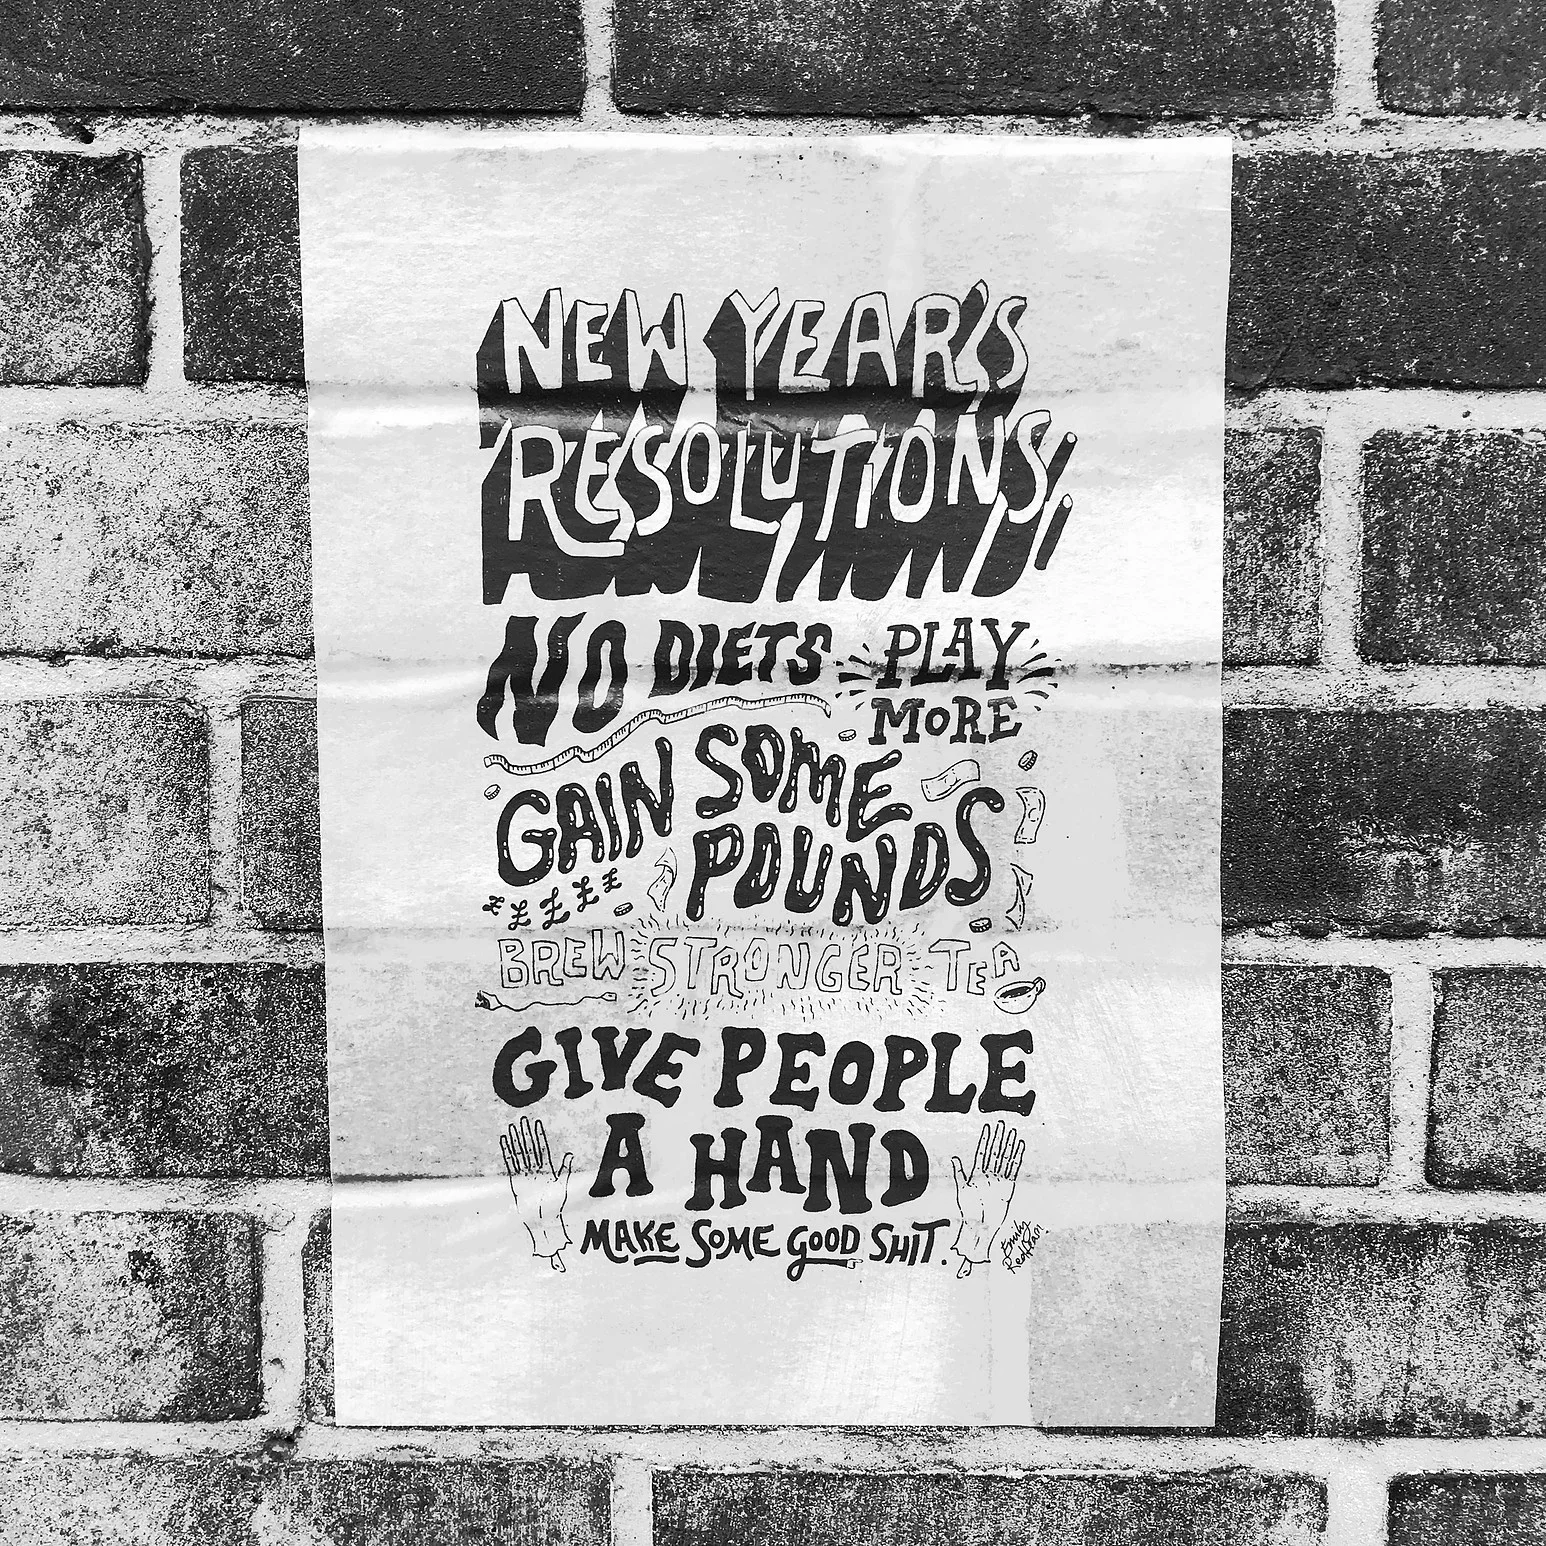 NEW YEAR'S
RESOLUTIONS!!
NO DIETS
PLAY
MORE
GAIN SOME
POUNDS
£ £ £ £ £
BREW STRONGER TEA
GIVE PEOPLE
A HAND
MAKE SOME GOOD SHIT.
Emily